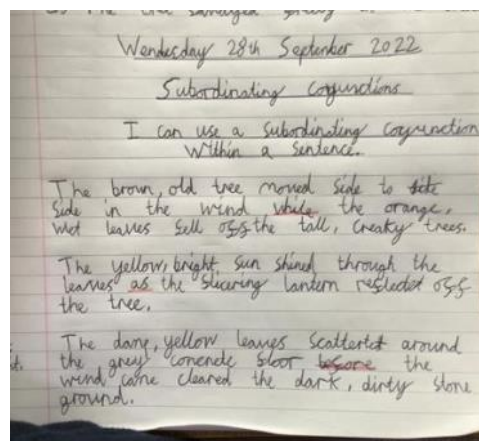 Wendesday 28th September 2022
Subordinating conjunctions
I can use a subordinating conjunction
within a sentence.
The brown, old tree moved side to
side in the wind while the orange,
wet leaves fell off the tall, creaky trees.
The yellow, bright sun shined through the
leaves as the slicering lantern reflected off
the tree.
The damp, yellow leaves scattertet around
the grey concrete floor before the
wind came cleared the dark, dirty stone
ground.